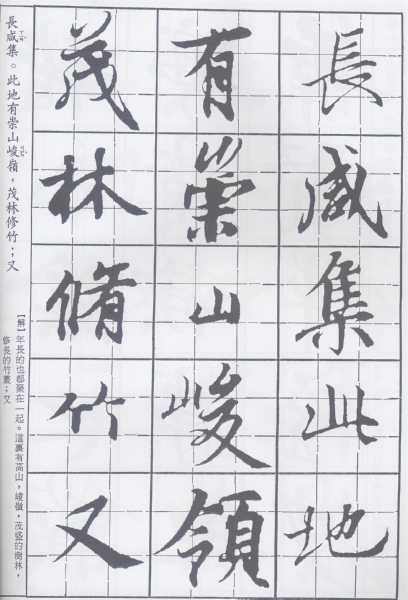 長咸集此地
有崇山峻領
茂林脩竹又
長咸集。此地有崇山峻嶺，茂林修竹；又
【解】年長的也都聚在一起。這裏有高山，峻嶺，茂盛的樹林，
修長的竹叢；又